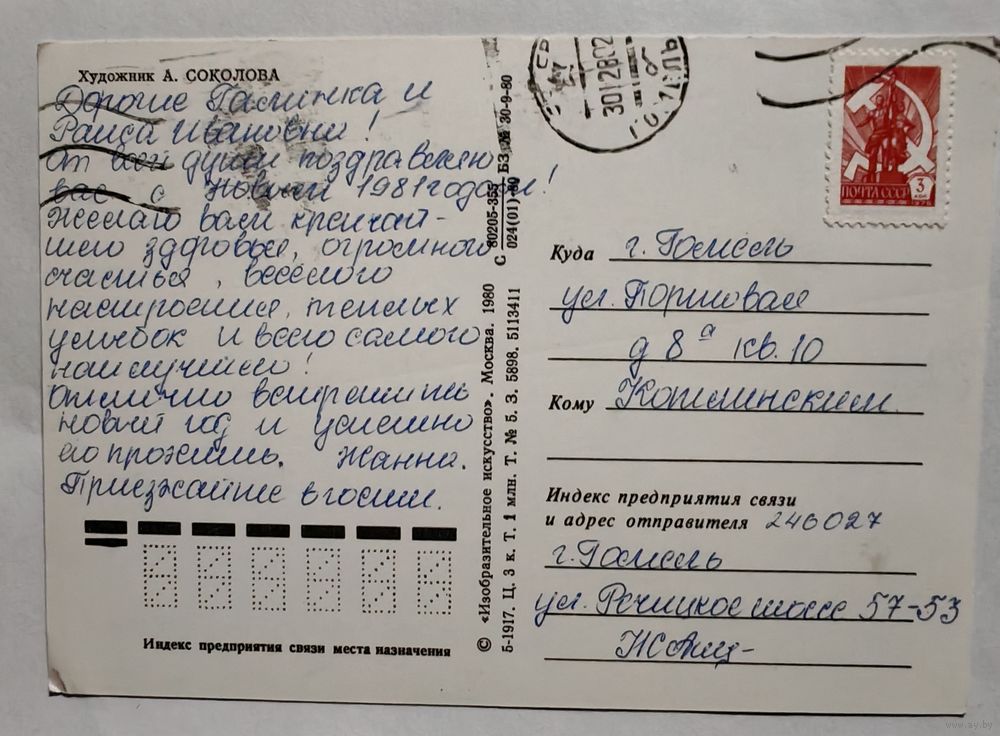 Художник А. СОКОЛОВА
Дорогие Галинка и
Раиса Ивановна!
От всей души поздравляю
вас с Новым 1981 годом!
Желаю вам крепчай-
шего здоровья, огромного
счастья, весёлого
настроения, теплых
улыбок и всего самого
наилучшего!
Отлично встретить
новый год и успешно
его прожить. Жанна.
Приезжайте в гости.
Индекс предприятия связи места назначения
© «Изобразительное искусство». Москва. 1980
5-1917. Ц. 3 к. Т. 1 млн. Т. № 5. З. 5898. 5113411
С 80205-353 БЗ № 30-9-80
024(01)-80
30 12 80 2
ГОМЕЛЬ
ПОЧТА СССР
3
КОП
Куда г. Гомель
ул. Портовая
д 8 а кв. 10
Кому Котлинским
Индекс предприятия связи
и адрес отправителя 246027
г. Гомель
ул. Речицкое шоссе 57-53
www.ay.by